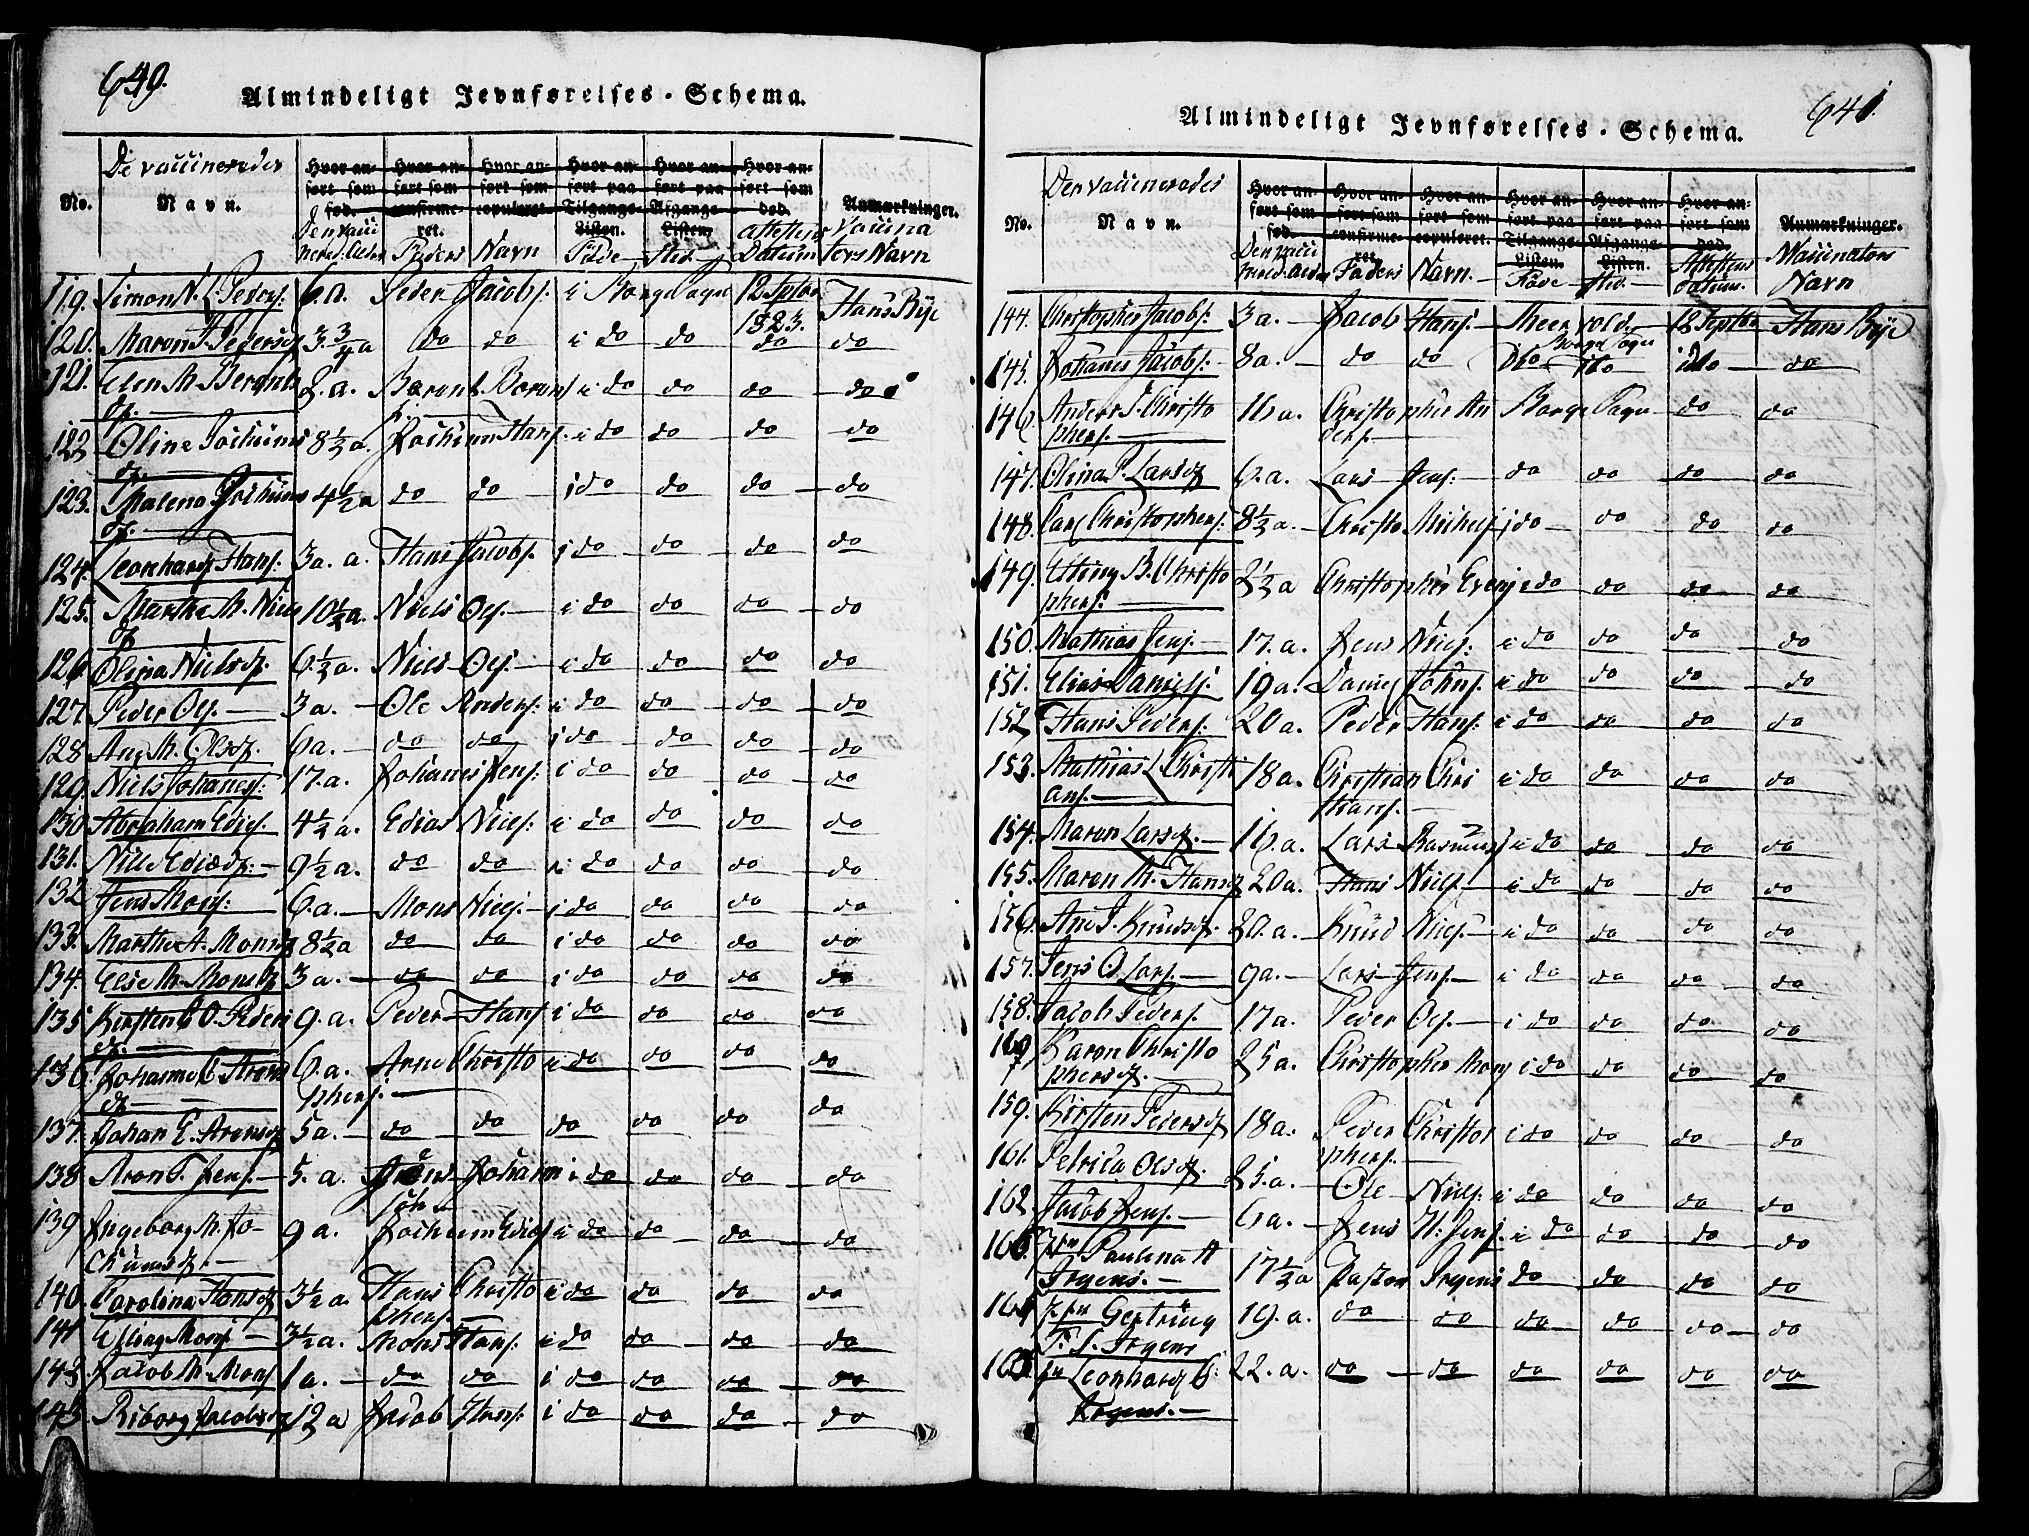 649.
Almindeligt Jevnførelses-Schema.
De vaccineredes
No. Navn. Hvor anført som fød. Hvor anført som confirmeret. Hvor anført som copuleret. Hvor anført paa Tilgangs-Listen. Hvor anført paa Afgangs-Listen. Hvor anført som død. Anmærkninger.
Den vaccinered. Alder Faders Navn Føde sted Attestens Datum Vaccinatørs Navn
119. Simon N. Peders. 6 a. Peder Jacobs. i Borge Sogn 12 Septbr 1823. Hans Bye
120. Maren P. Pedersd 3. 3/4 a do do i do do do do
121. Elen M. Berents 2. a. Berent Berens i do do do do
d.
122 Oline Jochims 8 1/2 a. Jochum Hans. i do do do do
d.
123. Malena Jochims 4 1/2 a do do i do do do do
d.
124. Leonhard Hans. 3 a. a. Hans Jacobs. i do do do do
125. Marthe M. Niels 10 1/2 a. Niels Ols. i do do do do
d
126. Olina Nielsd. 6 1/2 a. Niels Ols. i do do do do
127. Peder Ols. 3 a. Ole Anders. i do do do do
128 Ane M. Olsd. 6 a. do do i do do do do
129. Niels Johanes. 17. a. Johanes Jens. i do do do do
130 Abraham Edies. 4 1/2 a. Edias Niels. i do do do do
131. Nille Ediasd. 9 1/2 a. do do i do do do do
132 Jens Mons. 6. a. Mons Niels. i do do do do
133. Marthe A. Monsd 8 1/2 a do do i do do do do
134. Else M. Monsd 3 a. do do i do do do do
135 Kirsten C O. Peders 9. a. Peder Hans i do do do do
d.
136. Johanne C Arens 6. a. Arne Christo i do do do do
d phers.
137. Johan E. Arensd 5 a. do do do do do do
138 Aron T. Jens. 5. a. Jens Johann i do do do do
139 Ingeborg M. Jo- 9 a. Jochum Edias i do do do do
chumsd.
140. Carolina Hansd 3 1/2 a. Hans Christo i do do do do
phers.
141 Esling Mons 3 1/2 a. Mons Hans. i do do do do
143 Jacob M. Mons 1 a. do do i do do do do
143. Riborg Jacobsd 12 a Jacob Hans. i do do do do
641.
Almindeligt Jevnførelses-Schema.
Den vaccineredes
No. Navn. Hvor anført som fød. Hvor anført som confirmeret. Hvor anført som copuleret. Hvor anført paa Tilgangs-Listen. Hvor anført paa Afgangs-Listen. Hvor anført som død. Anmærkninger.
Den vacci nered. Alder Faders Navn. Føde sted. Attestens datum. Vaccinators Navn
144. Christopher Jacobs. 3 a. Jacob Hans. 12 Septbr Hans Bye
Borge Sogn
145. Johanes Jacobs. 8 a. do do ido do
146. Anders J. Christo 16 a. Christopher An Borge Sogn do do
phers. ders.
147. Olina P. Larsd 6. a. Lars Jens. do do do do
148. Carl Christophers. 8 1/2 a. Christo Michels i do do do do
149. B. Christo 2 1/2 a Christopher Evens i do do do do
phers.
150. Mathias Jens. 17. a. Jens Niels. i do do do do
151. Elias Daniels. 19 a. Daniel Johns. i do do do do
152 Hans Peders. 20 a. Peder Hans. i do do do do
153. Mathias Christi 18 a. Christian Chri i do do do do
ans. stians.
154. Maren Larsd. 16. a. Lars Rasmus i do do do do
155. Maren M. Hansd 20 a. Hans Niels. i do do do do
156. Ane J. Knudsd. 20. a. Knud Niels. i do do do do
157. Jens O. Lars. 9 a. Lars Jens. i do do do do
158. Jacob Peders. 17 a. Peder Ols. i do do do do
160 Karen Christo 25 a. Christopher Mons i do do do do
phersd.
159. Kirsten Pedersd 18 a. Peder Christo i do do do do
phers.
161. Petrica Olsd. 25. a. Ole Niels. i do do do do
162. Jacob Jens. 6 a. Jens H. Jens. i do do do do
Paulina A 17 1/2 a Pastor Irgens do do do do
Irgens.
Gertrüng 19. a. do do do do do do
T. S. Irgens
Leonhard C. 22. a. do do do do do do
Irgens.